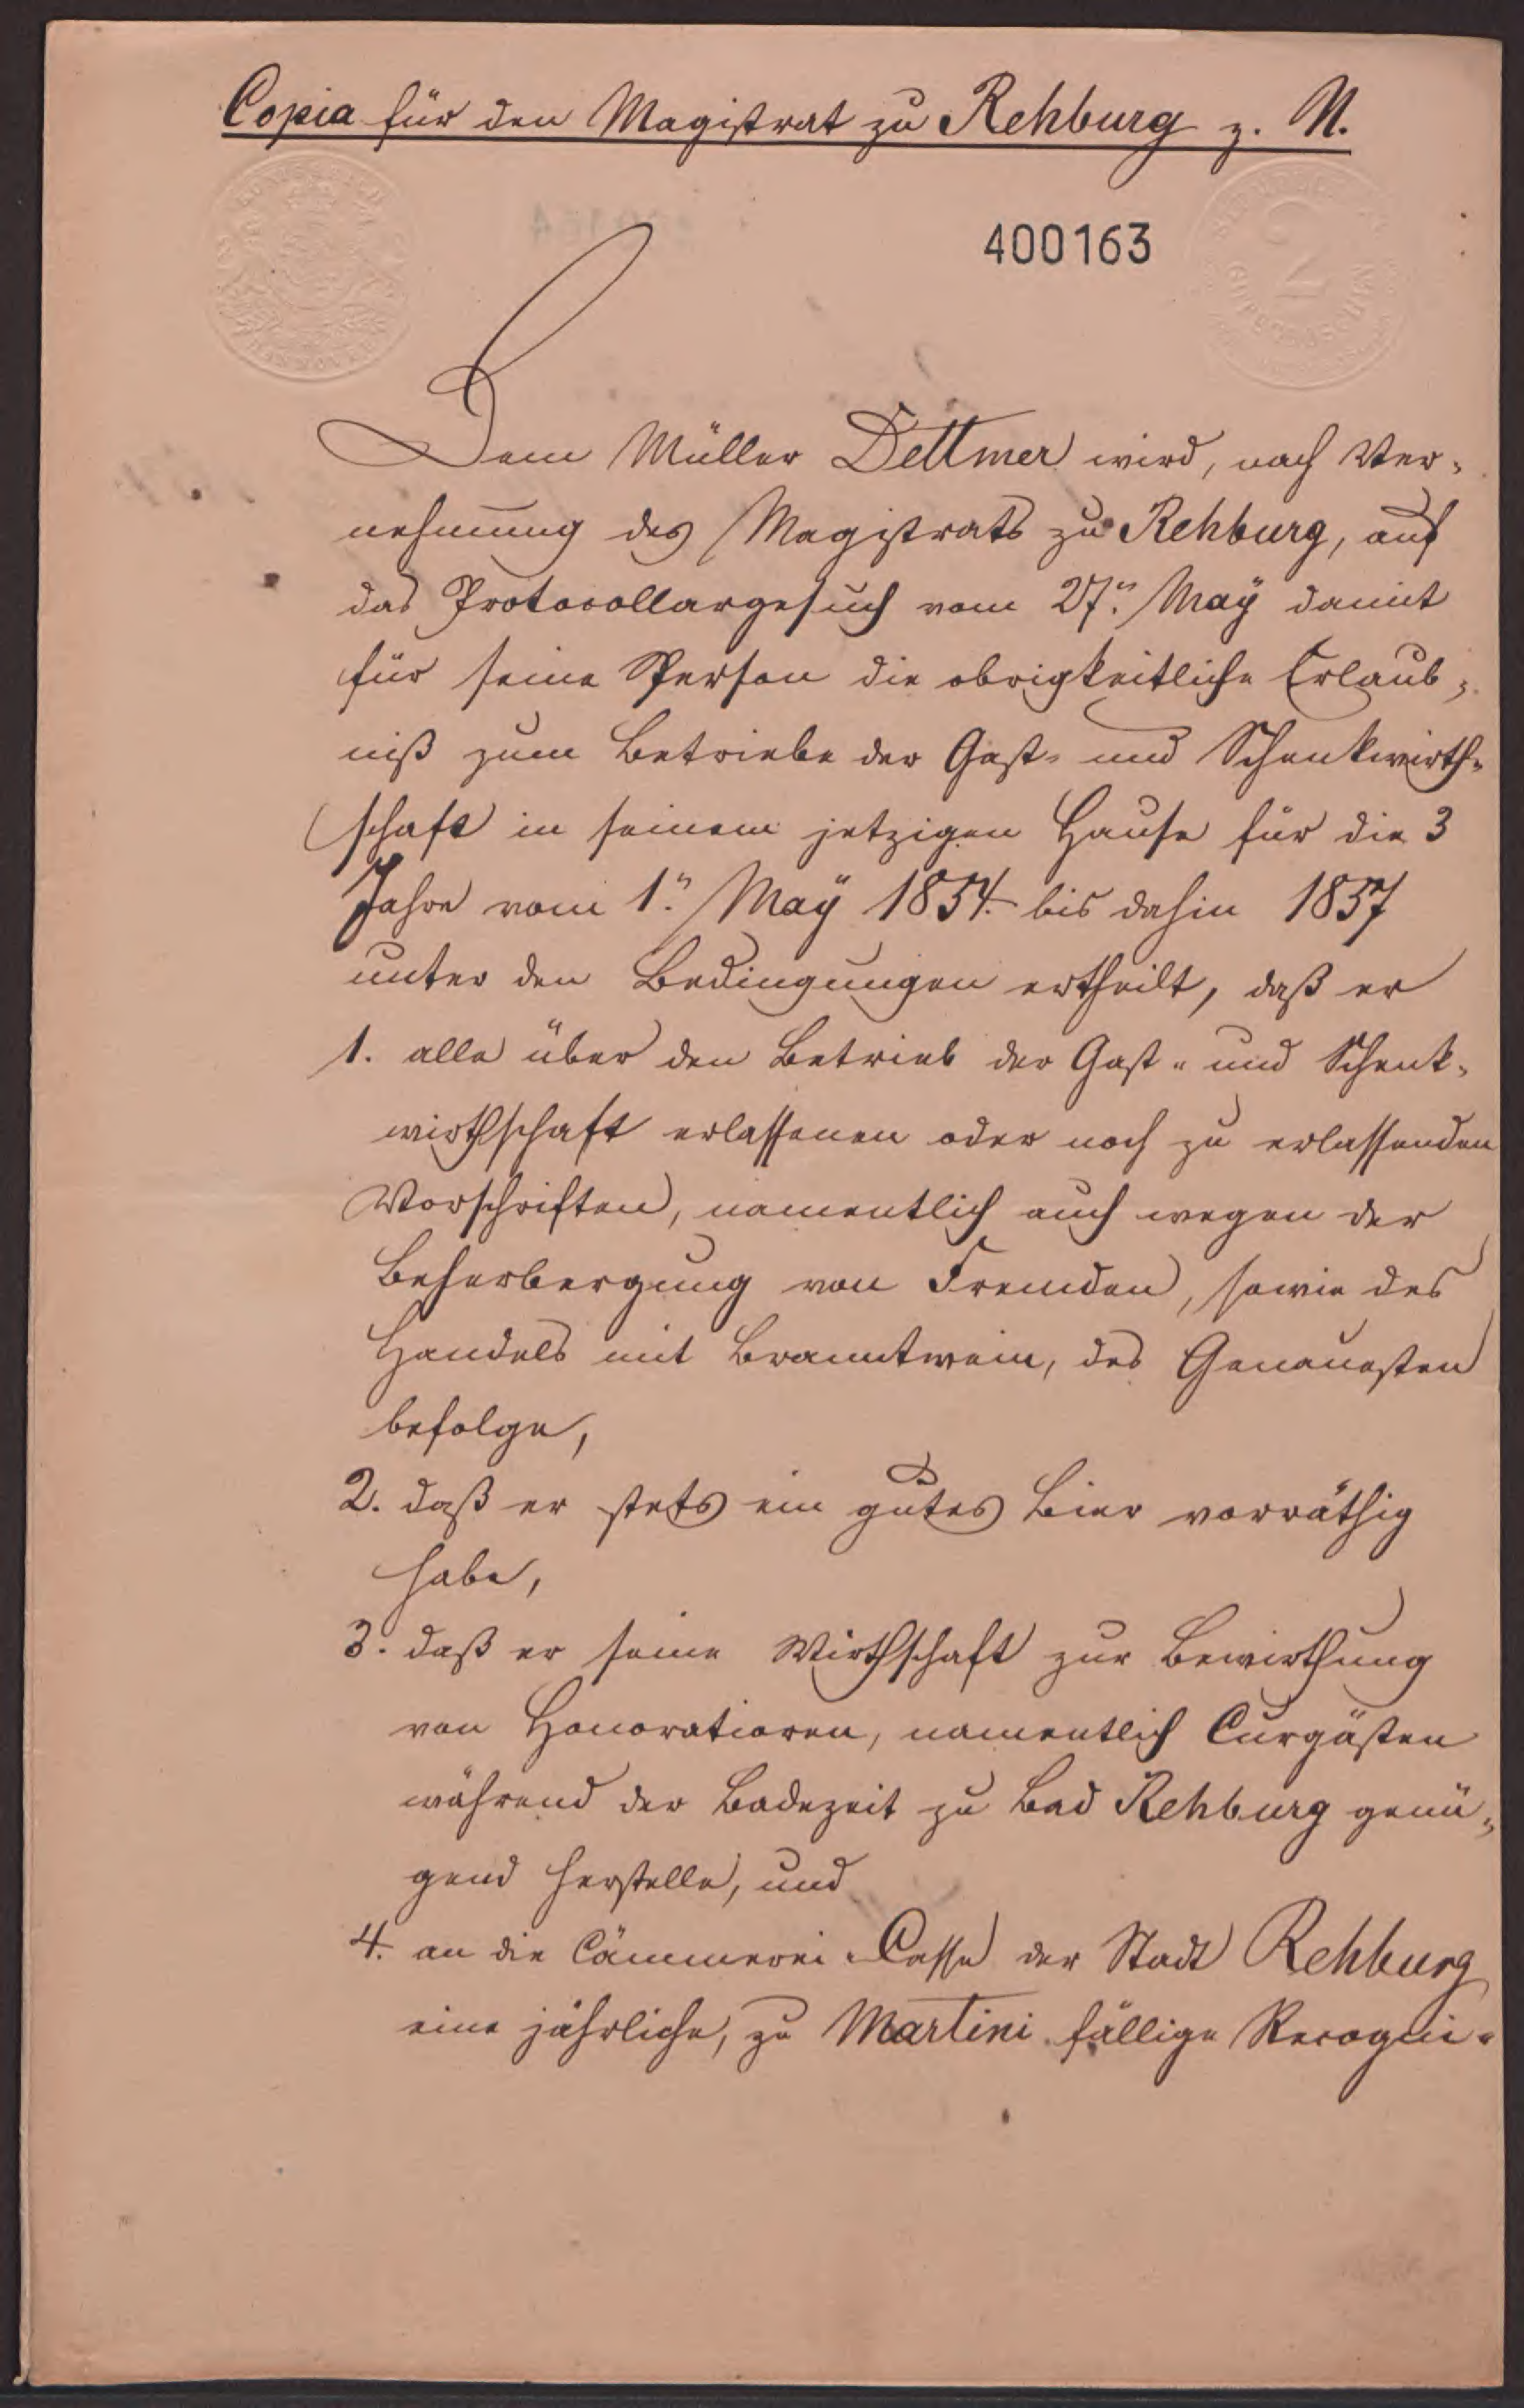 Copia für den Magistrat zu Rehburg z. N.
400163
Dem Müller Dettmer wird, nach Ver-
nehmung des Magistrats zu Rehburg, auf
das Protocollargesuch vom 27n. Maÿ damit
für seine Person die obrigkeitliche Erlaub-
niß zum Betriebe der Gast- und Schenkwirth-
schaft in seinem jetzigen Hause für die 3
Jahre vom 1n. Maÿ 1854. bis dahin 1857
unter den Bedingungen ertheilt, daß er
1. alle über den Betrieb der Gast- und Schenk-
wirthschaft erlassenen oder noch zu erlassenden
Vorschriften, namentlich auch wegen der
Beherbergung von Fremden, sowie des
Handels mit Branntwein, des Genauesten
befolge,
2. daß er stets ein gutes Bier vorräthig
habe,
3. daß er seine Wirthschaft zur Bewirthung
von Honoratioren, namentlich Curgästen
während der Badezeit zu Bad Rehburg genü-
gend herstelle, und
4. an die Cämmerei-Casse der Stadt Rehburg
eine jährliche, zu Martini fällige Recogni-